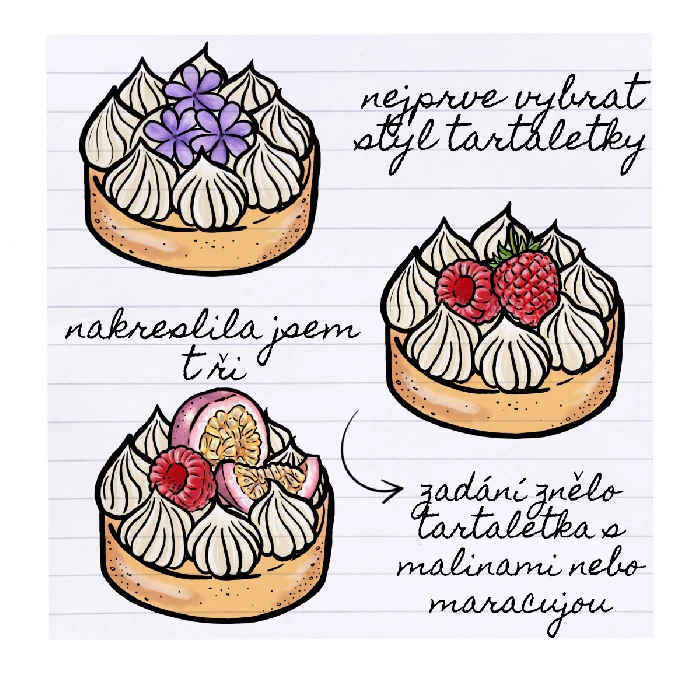 nejprve vybrat
styl tartaletky
nakreslila jsem
tři
zadání znělo
tartaletka s
malinami nebo
maracujou